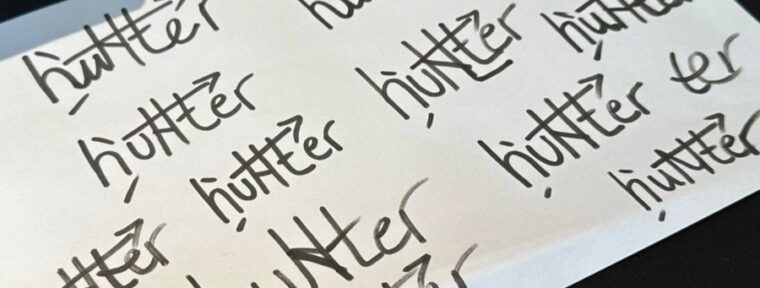 hunter
hu
hunter
hunter
hunter
hunter
hunter
hunter ter
nter
unter
hunter
er